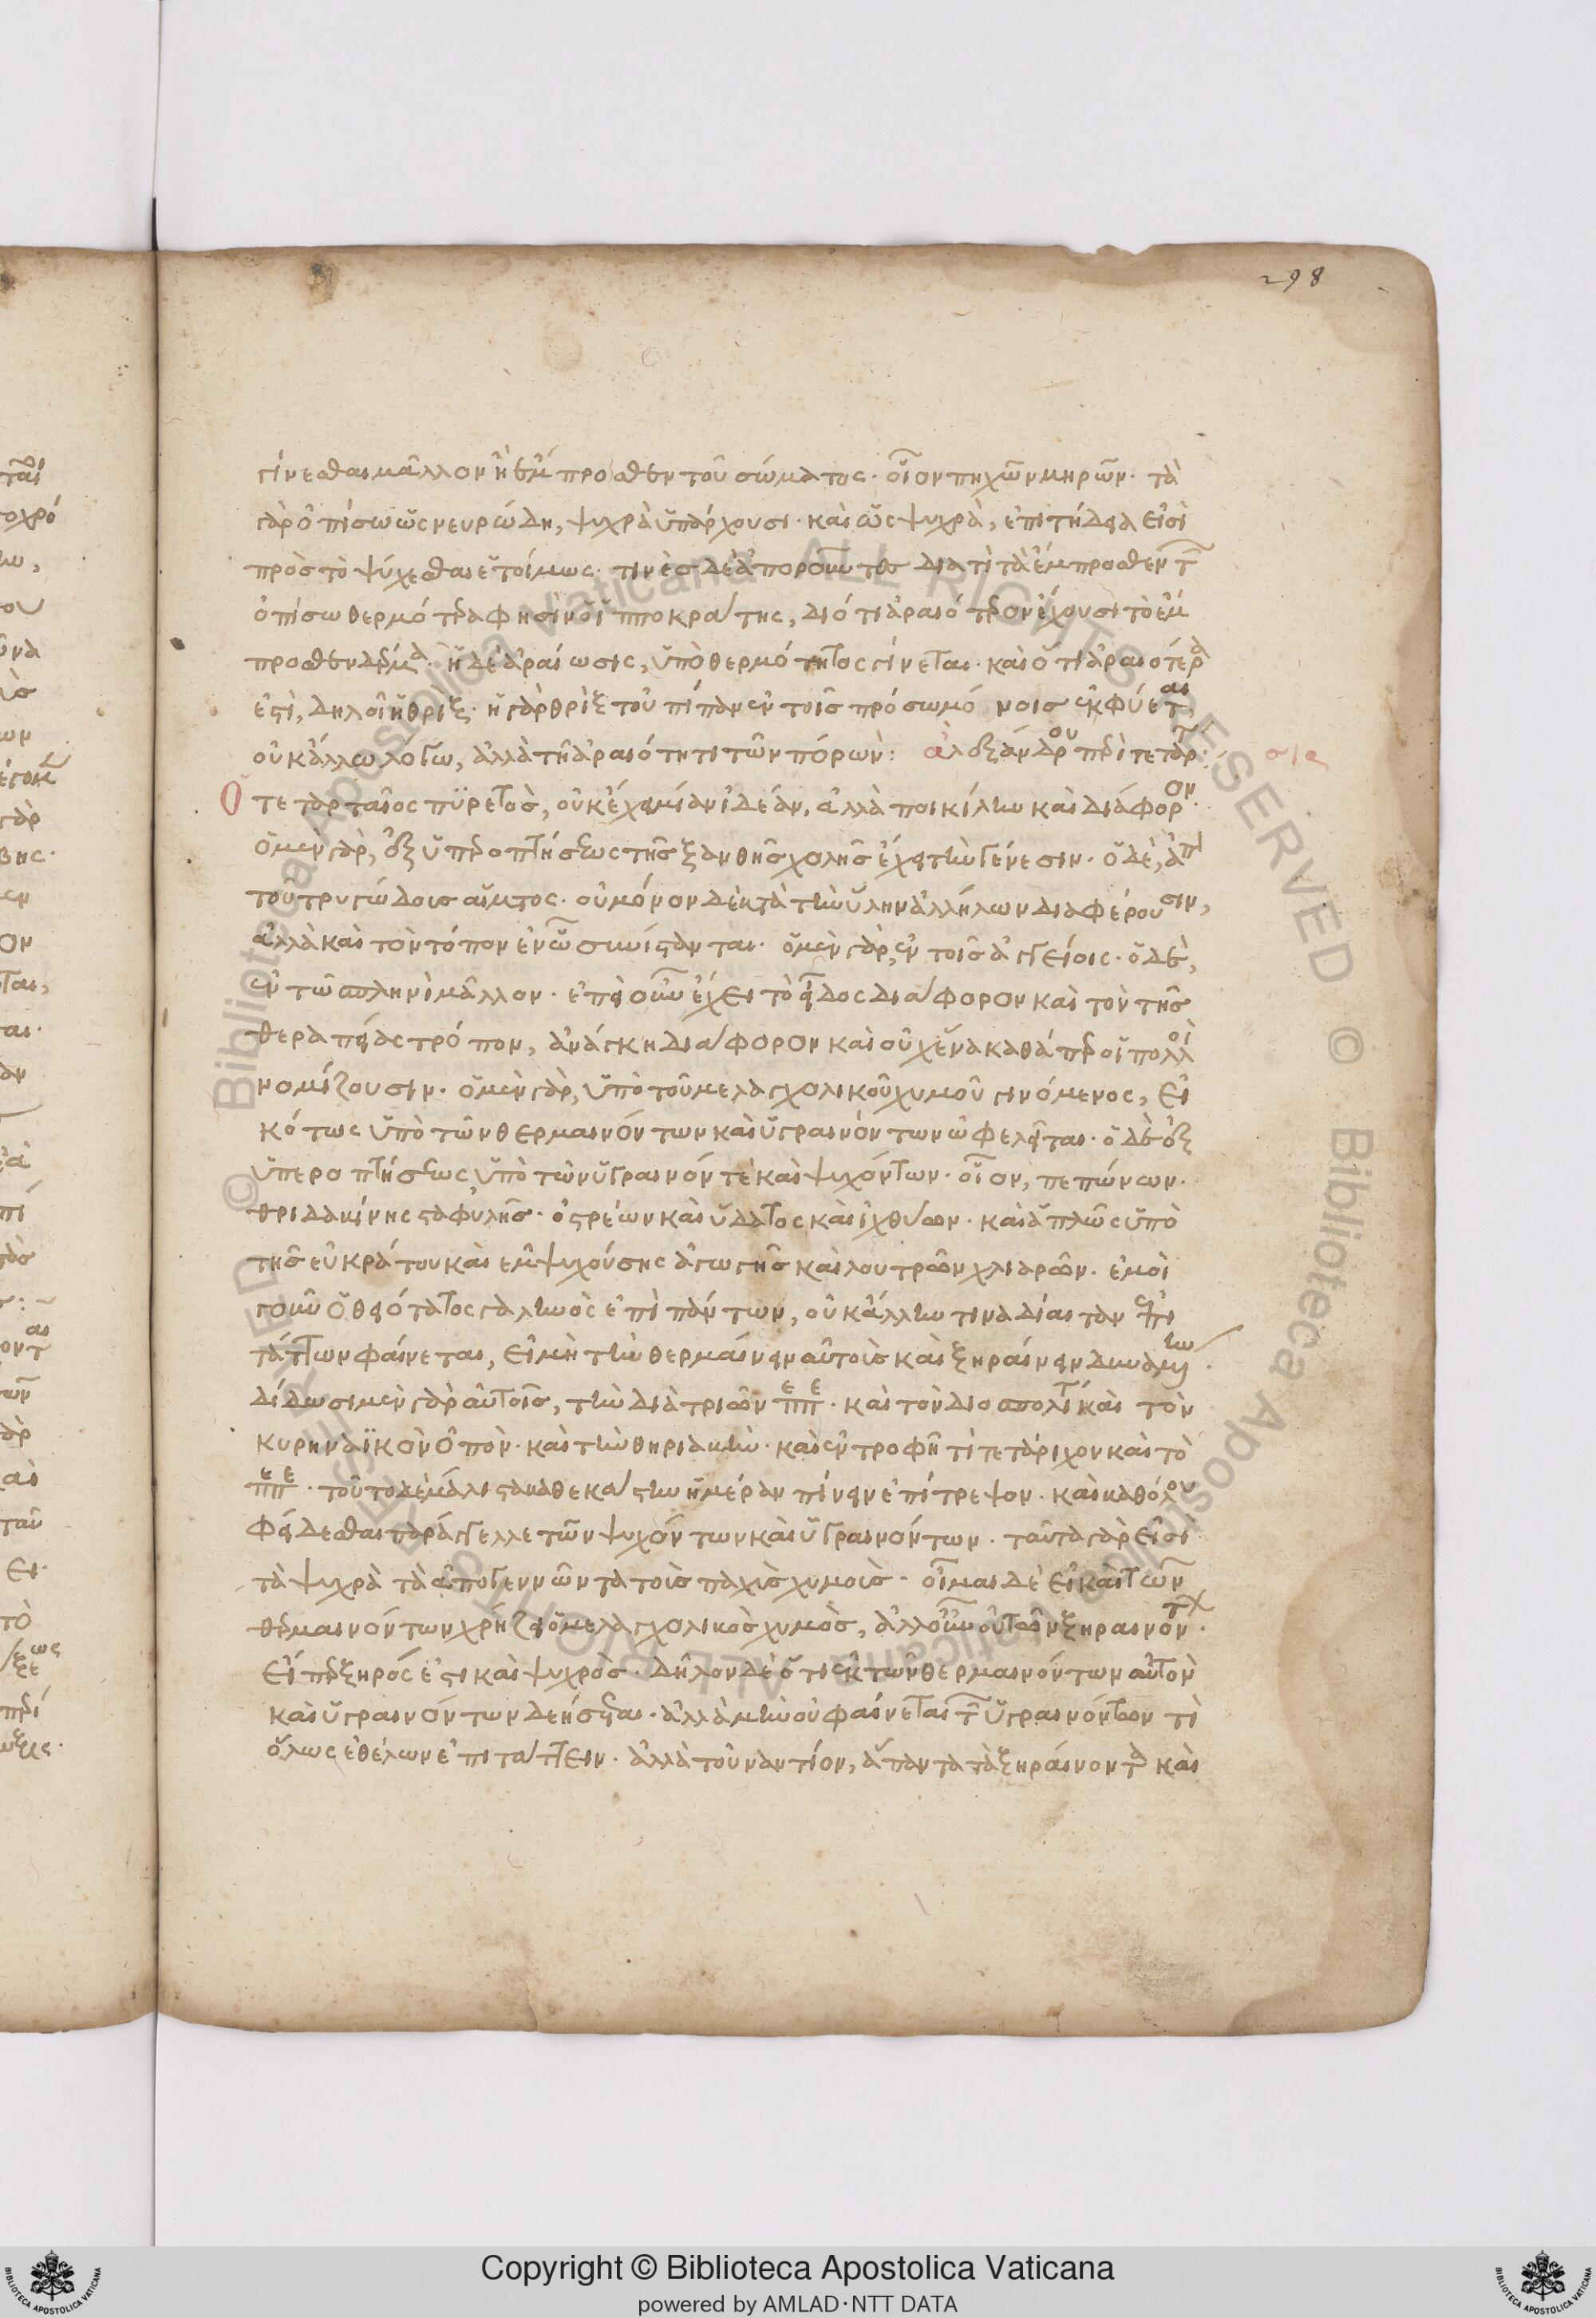 298
γίνεσθαι μᾶλλον ἢ ἔμπροσθεν τοῦ σώματος· οἷον πηχῶν μηρῶν· τὰ
γὰρ ὀπίσω ὡς νευρώδη, ψυχρὰ ὑπάρχουσι· καὶ ὡς ψυχρὰ, ἐπιτήδεια εἰσὶ
πρὸς τὸ ψύχεσθαι ἑτοίμως· τινὲς δὲ ἀποροῦντες διατί τὰ ἔμπροσθεν τῶν
ὀπίσω θερμότερα φησὶν ὁ ἱπποκράτης, διότι ἀραιότερον ἔχουσι τὸ ἔμ
προσθεν δέρμα· ἡ δὲ ἀραίωσις, ὑπὸ θερμότητος γίνεται· καὶ ὅτι ἀραιότερα
ἐστὶ, δηλοῖ ἡ θρίξ· ἡ γὰρ θρὶξ τοὐπίπαν ἐν τοῖς πρόσω μόνοις ἐκφύεται
οὐκ ἄλλω λόγω, ἀλλὰ τῆ ἀραιότητι τῶν πόρων: ἀλεξάνδρου περὶ τεταρτ· σια
Ὁ τεταρταῖος πυρετὸς, οὐκ ἔχει μίαν ἰδέαν, ἀλλὰ ποικίλην καὶ διάφορον·
ὁ μὲν γὰρ, ἐξ ὑπεροπτήσεως τῆς ξανθῆς χολῆς ἔχει τὴν γένεσιν· ὁ δὲ, ἀπὸ
τοῦ τρυγώδους αἵματος· οὐ μόνον δὲ κατὰ τὴν ὕλην ἀλλήλων διαφέρουσιν,
ἀλλὰ καὶ τὸν τόπον ἐν ᾧ συνίστανται· ὁ μὲν γὰρ, ἐν τοῖς ἀγγείοις· ὁ δὲ,
ἐν τῶ σπληνὶ μᾶλλον· ἐπεὶ οὖν ἔχει τὸ εἶδος διάφορον καὶ τὸν τῆς
θεραπείας τρόπον, ἀνάγκη διάφορον καὶ οὐχ ἕνα καθάπερ οἱ πολλοὶ
νομίζουσιν· ὁ μὲν γὰρ, ὑπὸ τοῦ μελαγχολικοῦ χυμοῦ γινόμενος, εἰ
κότως ὑπὸ τῶν θερμαινόντων καὶ ὑγραινόντων ὠφελεῖται· ὁ δὲ ἐξ
ὑπεροπτήσεως, ὑπὸ τῶν ὑγραινόντε καὶ ψυχόντων· οἷον, πεπώνων·
θριδακίνης σταφυλῆς· ὀστρέων καὶ ὕδατος καὶ ἰχθύων· καὶ ἁπλῶς ὑπὸ
τῆς εὐκράτου καὶ ἐμψυχούσης ἀγωγῆς καὶ λουτρῶν χλιαρῶν· ἐμοὶ
γοῦν ὁ θειότατος γαληνὸς ἐπὶ πάντων, οὐκ ἄλλην τινὰ δίαιταν ἐπι
τάττων φαίνεται, εἰ μὴ τὴν θερμαίνειν αὐτοὺς καὶ ξηραίνειν δυναμένην·
δίδωσι μὲν γὰρ αὐτοῖς, τὴν διὰ τριῶν πεπε· καὶ τὸν διοσπολιτ καὶ τὸν
κυρηναϊκὸν ὀπὸν· καὶ τὴν θηριακὴν· καὶ ἐν τροφῆ τί τε τάριχον καὶ τὸ
πεπε· τοῦτο δὲ μάλιστα καθεκάστην ἡμέραν πίνειν ἐπίτρεψον· καὶ καθόλου
φείδεσθαι παράγγελλε τῶν ψυχόντων καὶ ὑγραινόντων· ταῦτα γὰρ εἰσὶ
τὰ ψυχρὰ τὰ ἀπογεννῶντα τοὺς παχεῖς χυμοὺς· οἶμαι δὲ εἰ καὶ τῶν
θερμαινόντων χρήζει ὁ μελαγχολικὸς χυμὸς, ἀλλ' οὖν οὐ τῶν ξηραινόντων·
εἴπερ ξηρός ἐστι καὶ ψυχρὸς· δῆλον δὲ ὅτι ἐκ τῶν θερμαινόντων αὐτὸν
καὶ ὑγραινόντων δεήσεται· ἀλλὰ μὴν οὐ φαίνεται τῶν ὑγραινόντων τὶ
ὅλως ἐθέλων ἐπιτάττειν· ἀλλὰ τοὐναντίον, ἅπαντα τὰ ξηραίνοντα καὶ
Copyright © Biblioteca Apostolica Vaticana
powered by AMLAD·NTT DATA